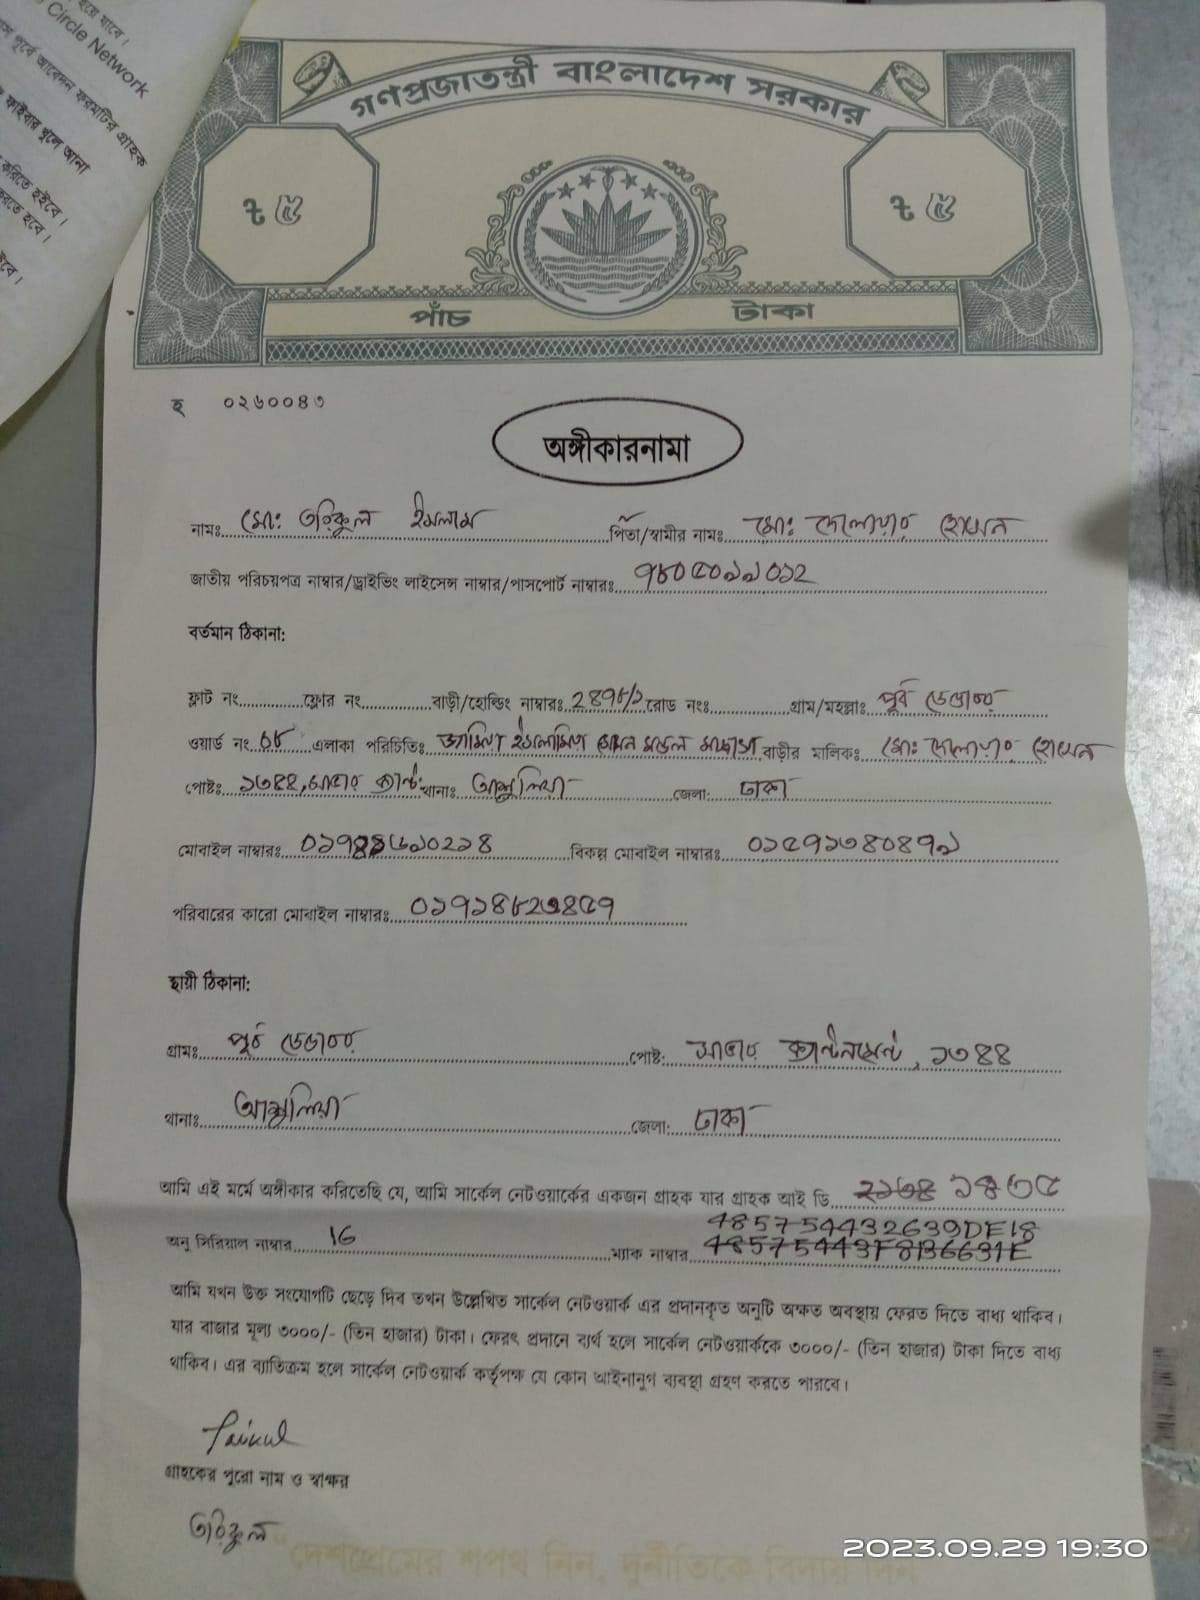 হয়ে যাবে।
Circle Network
পূর্বে আবেদন ফরমটির গ্রাহক
ফাইবার খুলে আনা
করিতে হইবে।
করতে হবে।
ইবে।
গণপ্রজাতন্ত্রী বাংলাদেশ সরকার
৳ ৫ ৳ ৫
পাঁচ টাকা
হ ০২৬০০৪৩
অঙ্গীকারনামা
নামঃ মোঃ তরিকুল ইসলাম পিতা/স্বামীর নামঃ মোঃ দেলোয়ার হোসেন
জাতীয় পরিচয়পত্র নাম্বার/ড্রাইভিং লাইসেন্স নাম্বার/পাসপোর্ট নাম্বারঃ ৭৮০৫০১৯০১২
বর্তমান ঠিকানা:
ফ্লাট নং ফ্লোর নং বাড়ী/হোল্ডিং নাম্বারঃ রোড নংঃ গ্রাম/মহল্লাঃ পূর্ব ডেন্ডাবর
ওয়ার্ড নং ০৮ এলাকা পরিচিতিঃ জামিয়া ইসলামিয়া হোসেন মন্ডল মাদ্রাসা বাড়ীর মালিকঃ মোঃ দেলোয়ার হোসেন
পোষ্টঃ ১৩৪৪, সাভার ক্যান্টঃ থানাঃ আশুলিয়া জেলা: ঢাকা
মোবাইল নাম্বারঃ বিকল্প মোবাইল নাম্বারঃ ০১৫৭১৩৪০৪৭১
পরিবারের কারো মোবাইল নাম্বারঃ ০১৭১৪৮২৩৪৫৭
স্থায়ী ঠিকানা:
গ্রামঃ পূর্ব ডেন্ডাবর পোষ্ট: সাভার ক্যান্টনমেন্ট, ১৩৪৪
থানাঃ আশুলিয়া জেলা: ঢাকা
আমি এই মর্মে অঙ্গীকার করিতেছি যে, আমি সার্কেল নেটওয়ার্কের একজন গ্রাহক যার গ্রাহক আই ডি ১৪৩৫
485754432639DE18
অনু সিরিয়াল নাম্বার 16 ম্যাক নাম্বার 48575443F8B6631E
আমি যখন উক্ত সংযোগটি ছেড়ে দিব তখন উল্লেখিত সার্কেল নেটওয়ার্ক এর প্রদানকৃত অনুটি অক্ষত অবস্থায় ফেরত দিতে বাধ্য থাকিব।
যার বাজার মূল্য ৩০০০/- (তিন হাজার) টাকা। ফেরৎ প্রদানে ব্যর্থ হলে সার্কেল নেটওয়ার্ককে ৩০০০/- (তিন হাজার) টাকা দিতে বাধ্য
থাকিব। এর ব্যতিক্রম হলে সার্কেল নেটওয়ার্ক কর্তৃপক্ষ যে কোন আইনানুগ ব্যবস্থা গ্রহণ করতে পারবে।
গ্রাহকের পুরো নাম ও স্বাক্ষর
তরিকুল
"দেশপ্রেমের শপথ নিন, দুর্নীতিকে বিদায় দিন
2023.09.29 19:30